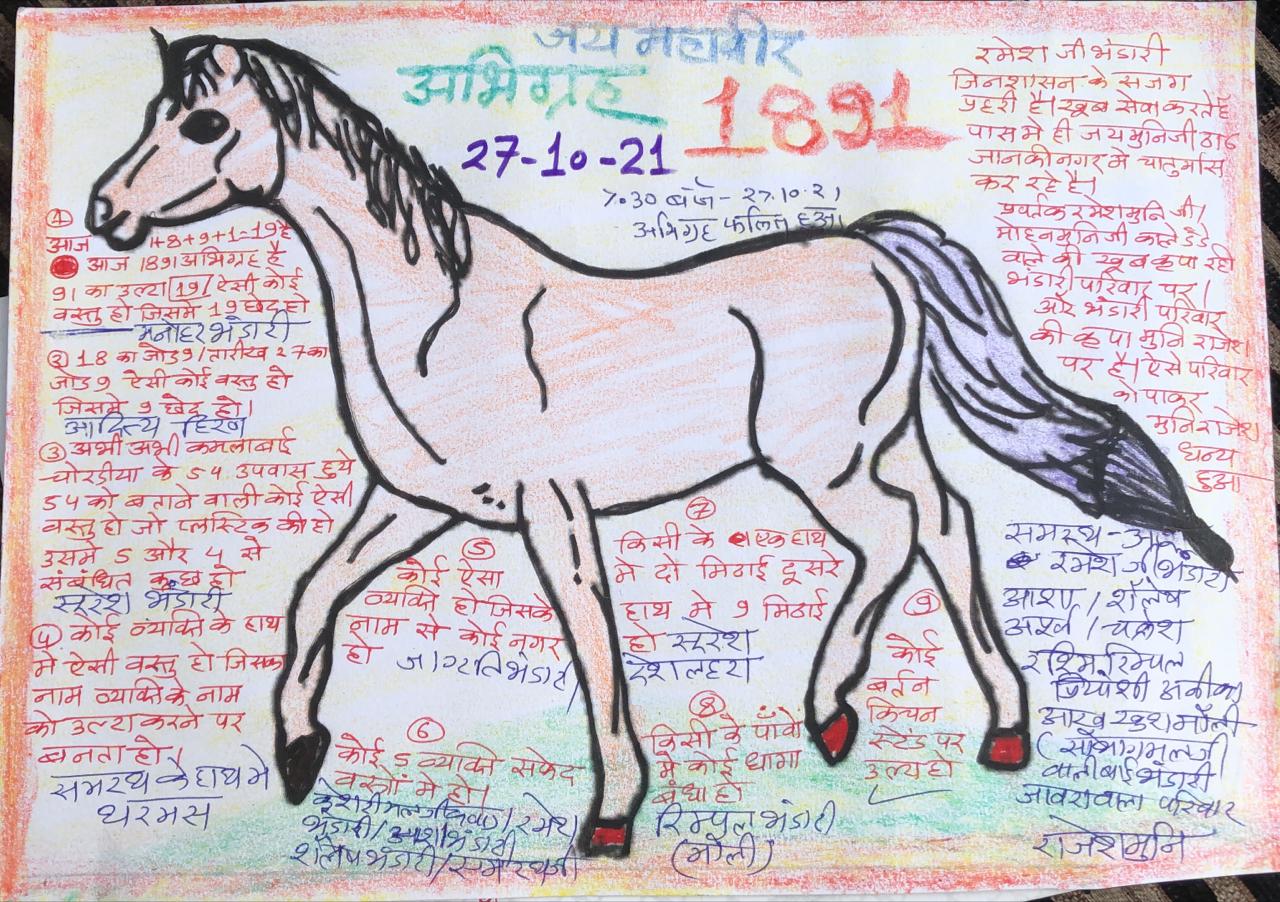 जय महावीर
अभिग्रह
1891
27-10-21
7.30 बजे - 27.10.21
अभिग्रह फलित हुआ
रमेश जी भंडारी
जिनशासन के सजग
प्रहरी है। खूब सेवा करते है
पास मे ही जयमुनिजी ठाठ
जानकीनगर मे चातुर्मास
कर रहे है।
प्रवर्तक रमेशमुनि जी।
मोहनमुनिजी काले डंडे
वाले की खूब कृपा रही
भंडारी परिवार पर।
और भंडारी परिवार
की कृपा मुनि राजेश
पर है। ऐसे परिवार
को पाकर
मुनिराजेश
धन्य
हुआ
①
आज 1+8+9+1=19 है
आज 1891 अभिग्रह है
91 का उल्टा 19 / ऐसी कोई
वस्तु हो जिसमे 19 छेद हो
मनोहर भंडारी
② 18 का जोड 9 / तारीख 27 का
जोड 9 ऐसी कोई वस्तु हो
जिसमे 9 छेद हो।
आदित्य हिरण
③ अभी अभी कमलाबाई
चोरडीया के 54 उपवास हुये
54 को बताने वाली कोई ऐसी
वस्तु हो जो प्लास्टिक की हो
उसमे 5 और 4 से
संबंधित कुछ हो
सुरेश भंडारी
④ कोई व्यक्ति के हाथ
मे ऐसी वस्तु हो जिसका
नाम व्यक्ति के नाम
को उल्टा करने पर
बनता हो।
समरथ के हाथ मे
थरमस
⑤
कोई ऐसा
व्यक्ति हो जिसके
नाम से कोई नगर
हो जागृति भंडारी
⑥
कोई 5 व्यक्ति सफेद
वस्त्रों मे हो।
रमेश
भंडारी / आशा भंडारी
शैलेष भंडारी / समरथजी
⑦
किसी के एक हाथ
मे दो मिठाई दूसरे
हाथ मे 9 मिठाई
हो सुरेश
देशलहरा
⑧
किसी के पाँवों
मे कोई धागा
बंधा हो
रिम्पल भंडारी
(मौली)
⑨
कोई
बर्तन
किचन
स्टेंड पर
उल्टा हो
समरथ -
रमेश जी भंडारी
आशा / शैलेष
अपूर्व / चक्रेश
रश्मि रिम्पल
जियांशी अनीका
आरव खुश मौली
(सौभागमलजी
भंडारी
जावरावाला परिवार
राजेशमुनि